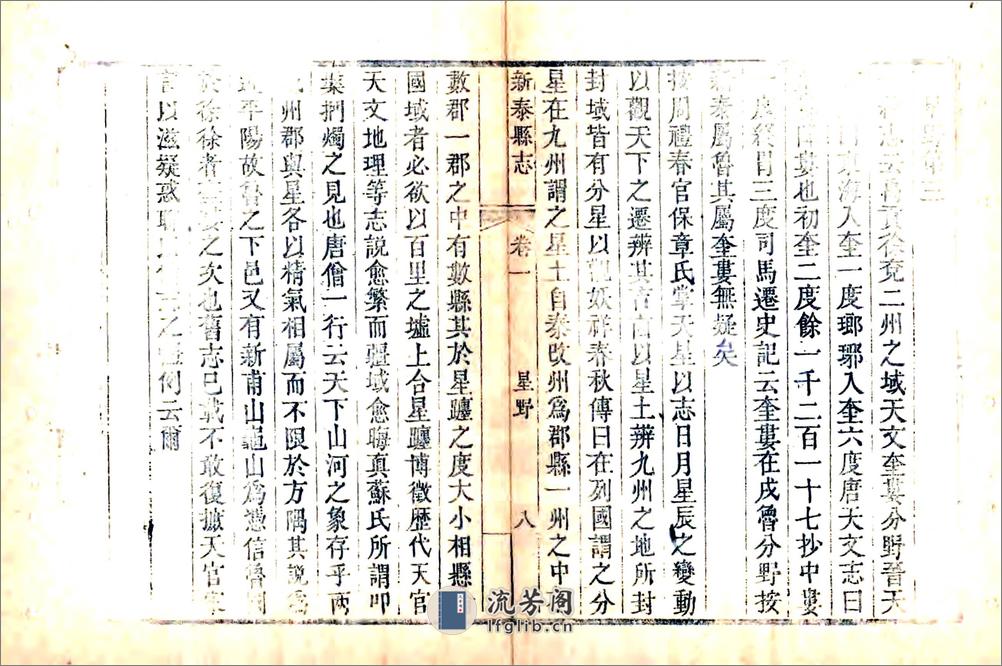 星野第三
志云禹貢徐兗二州之域天文奎婁分野晉天
海入奎一度瑯琊入奎六度唐天文志曰
降婁也初奎二度餘一千二百一十七抄中婁
度終胃三度司馬遷史記云奎婁在戌魯分野按
新泰屬魯其屬奎婁無疑矣
按周禮春官保章氏掌天星以志日月星辰之變動
以觀天下之遷辨其吉凶以星土辨九州之地所封
封域皆有分星以觀妖祥春秋傳曰在列國謂之分
星在九州謂之星土自秦改州爲郡縣一州之中有
新泰縣志
卷一
星野
八
數郡一郡之中有數縣其於星躔之度大小相縣
國域者必欲以百里之墟上合星躔博徵歷代天官
天文地理等志說愈繁而疆域愈晦真蘇氏所謂叩
槃捫燭之見也唐僧一行云天下山河之象存乎兩
州郡與星各以精氣相屬而不限於方隅其說爲
平陽故魯之下邑又有新甫山龜山爲憑信魯
於徐徐者之次也舊志已載不敢復摭天官家
言以滋疑惑例云爾
流芳阁
lfglib.cn